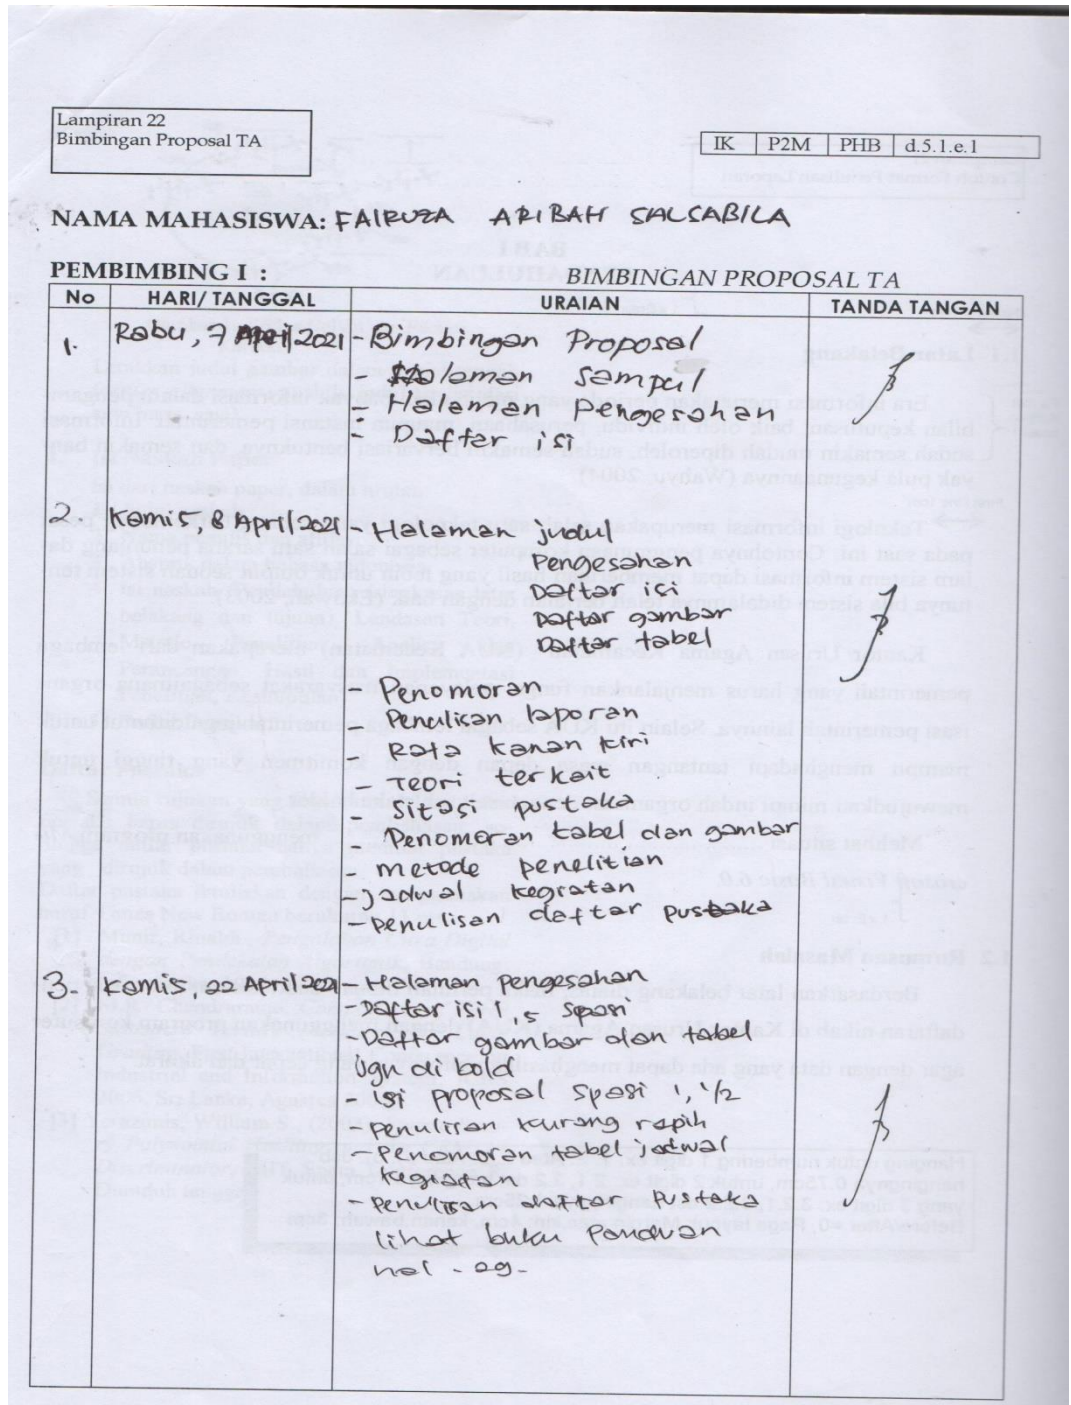 Lampiran 22
Bimbingan Proposal TA
IK P2M PHB d.5.1.e.1
NAMA MAHASISWA: FAIRUZA ARIBAH SALSABILA
PEMBIMBING I : BIMBINGAN PROPOSAL TA
No HARI/ TANGGAL URAIAN TANDA TANGAN
1. Rabu, 7 April 2021 - Bimbingan Proposal
- Halaman Sampul
- Halaman Pengesahan
- Daftar isi
2. Kamis, 8 April 2021 - Halaman judul
Pengesahan
Daftar isi
Daftar gambar
Daftar tabel
- Penomoran
- Penulisan laporan
- Rata kanan kiri
- Teori terkait
- Sitasi pustaka
- Penomoran tabel dan gambar
- metode penelitian
- jadwal kegiatan
- penulisan daftar pustaka
3. Kamis, 22 April 2021 - Halaman Pengesahan
- Daftar isi 1,5 spasi
- Daftar gambar dan tabel
di bold
- Isi proposal spasi 1, 1/2
- Penulisan kurang rapih
- Penomoran tabel jadwal
kegiatan
- penulisan daftar pustaka
lihat buku Panduan
hal - 29 -